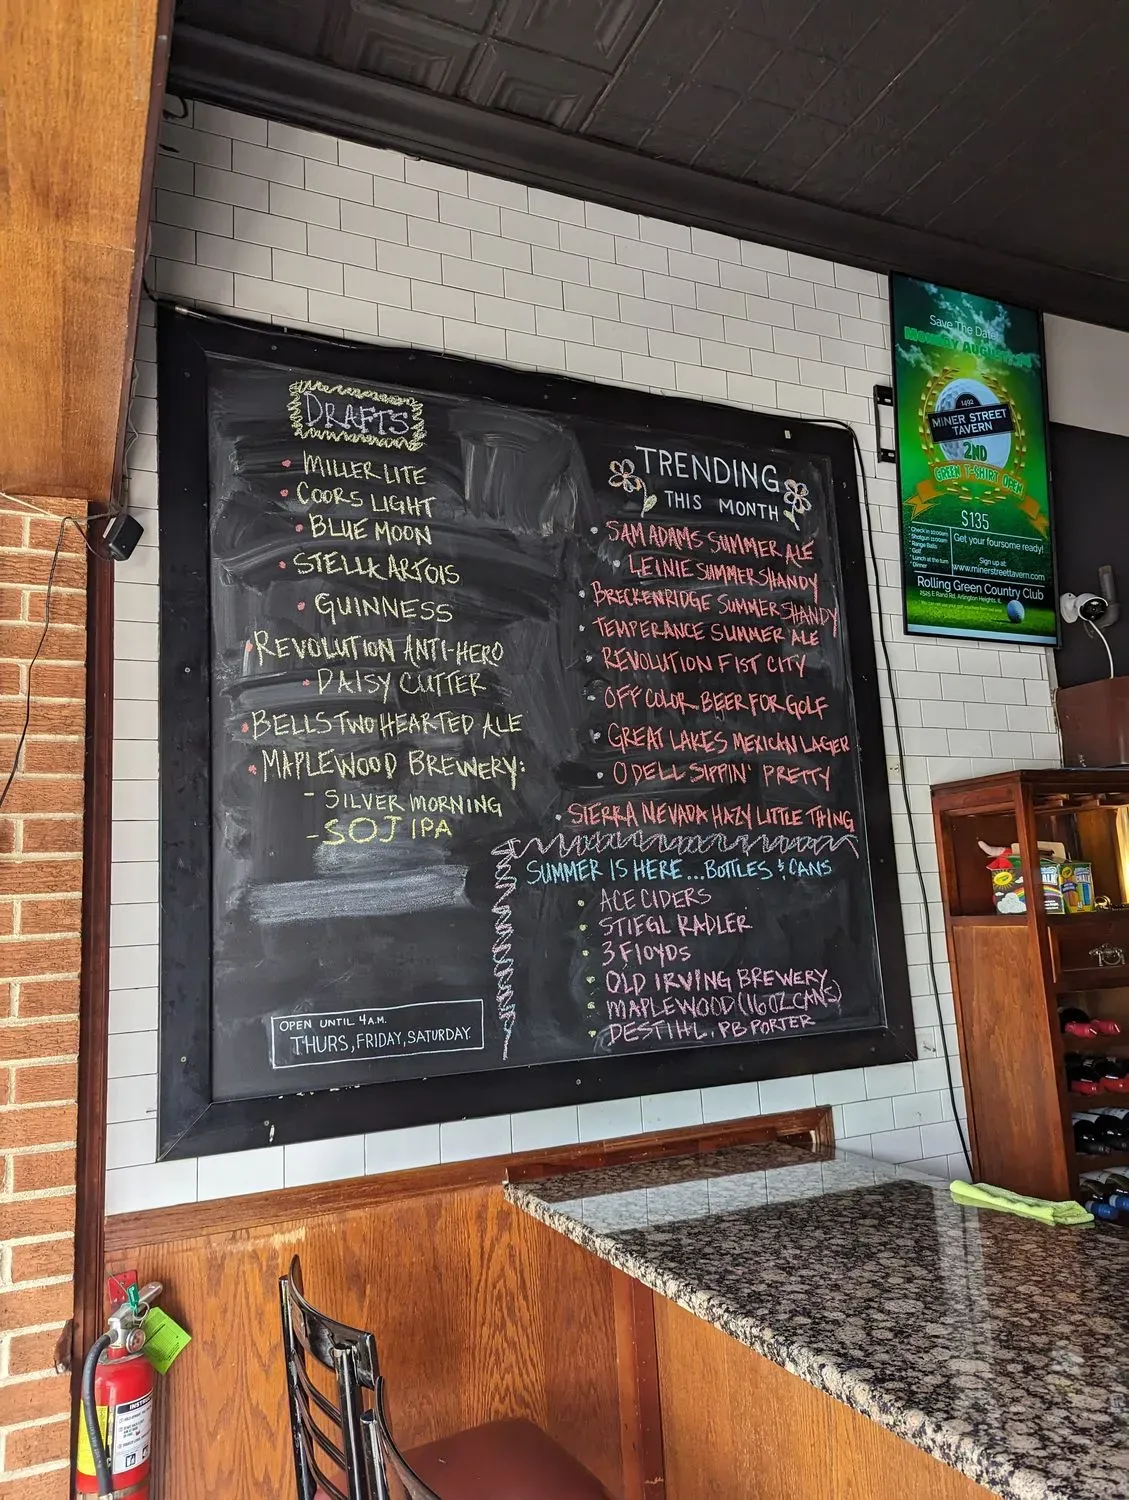 DRAFTS
MILLER LITE
COORS LIGHT
BLUE MOON
STELLA ARTOIS
GUINNESS
REVOLUTION ANTI-HERO
DAISY CUTTER
BELLS TWO HEARTED ALE
MAPLEWOOD BREWERY:
- SILVER MORNING
- SOJ IPA
OPEN UNTIL 4 A.M.
THURS, FRIDAY, SATURDAY
TRENDING
THIS MONTH
SAM ADAMS SUMMER ALE
LEINIE SUMMER SHANDY
BRECKENRIDGE SUMMER SHANDY
TEMPERANCE SUMMER ALE
REVOLUTION FIST CITY
OFF COLOR BEER FOR GOLF
GREAT LAKES MEXICAN LAGER
ODELL SIPPIN' PRETTY
SIERRA NEVADA HAZY LITTLE THING
SUMMER IS HERE... BOTTLES & CANS
ACE CIDERS
STIEGL RADLER
3 FLOYDS
OLD IRVING BREWERY
MAPLEWOOD (16 OZ CANS)
DESTIHL. PB PORTER
Save The Date
Monday AUGUST
1492
MINER STREET
TAVERN
2ND
GREEN T-SHIRT OPEN
$135
* Check in 10:00am
* Shotgun 11:00am
* Range Balls
* Golf
* Lunch at the turn
* Dinner
Get your foursome ready!
Sign up at:
www.minerstreettavern.com
Rolling Green Country Club
2525 E Rand Rd, Arlington Heights, IL